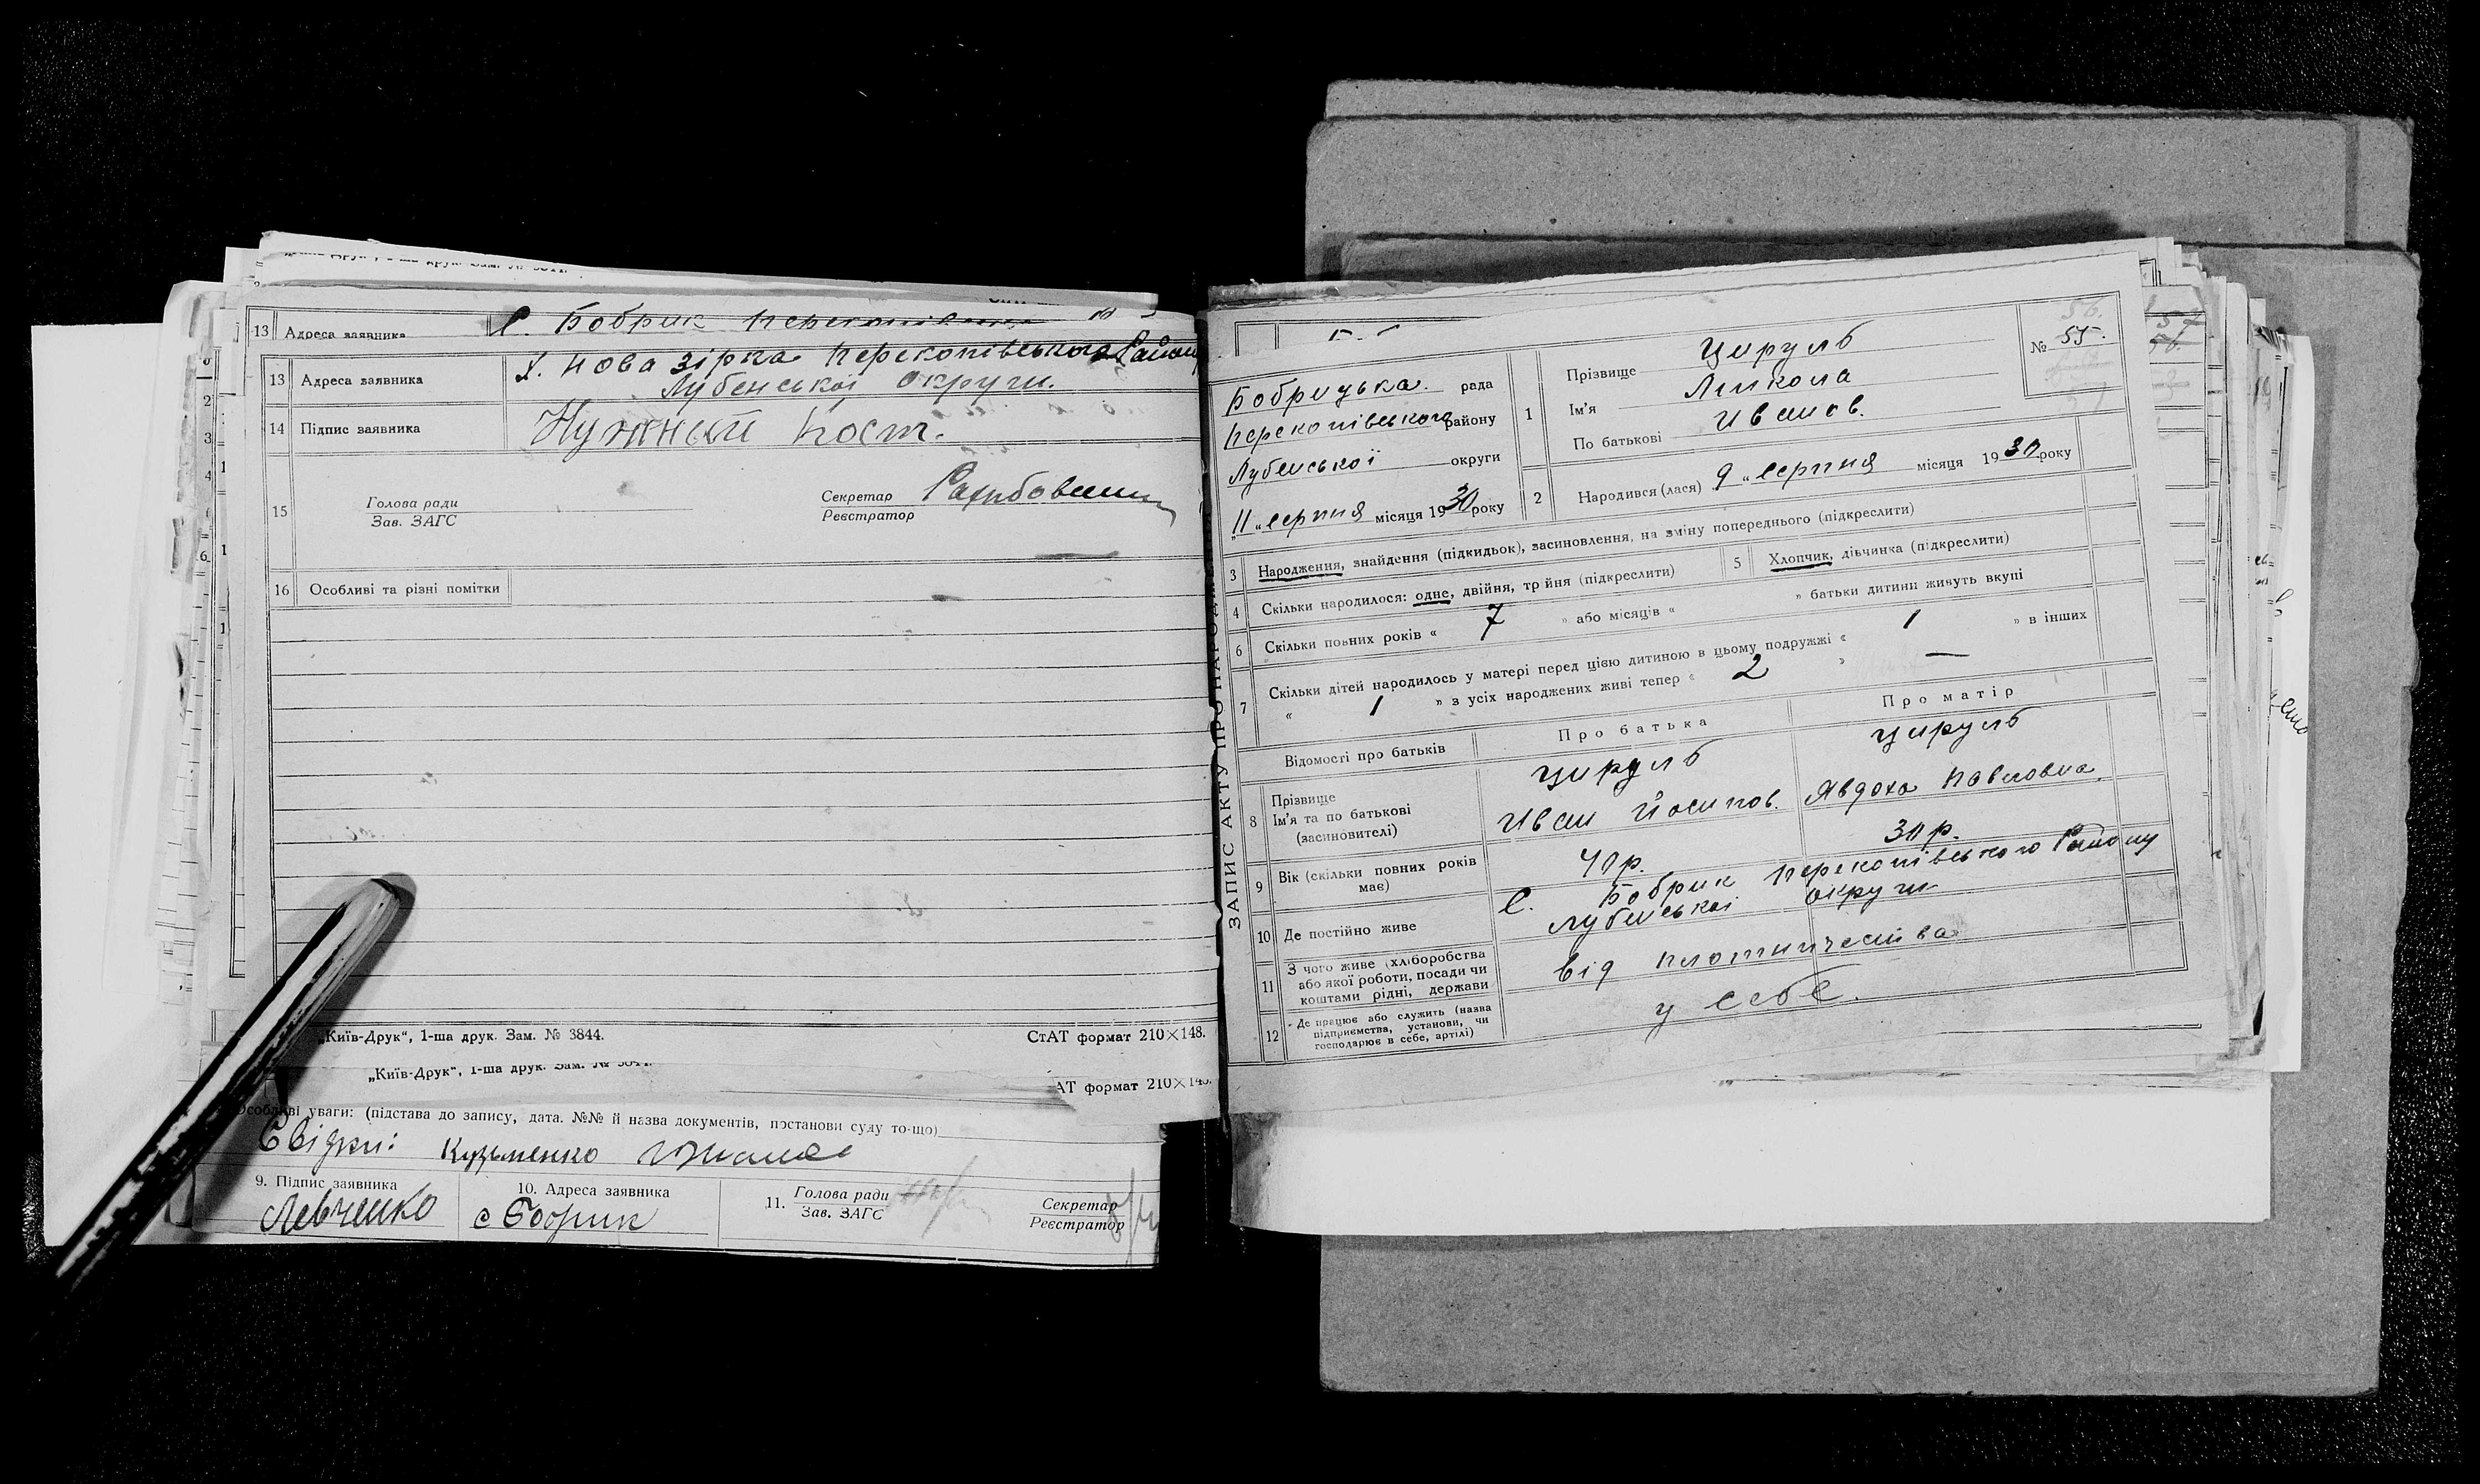 13 Адреса заявника С. Бобрик Перекопівського
13 Адреса заявника Х. Нова Зірка Перекопівського Району
Лубенської Округи.
14 Підпис заявника Нужный Кост.
15 Голова ради
Зав. ЗАГС
Секретар
Реєстратор
16 Особливі та різні помітки
„Київ-Друк“, 1-ша друк. Зам. № 3844.
СтАТ формат 210×148.
„Київ-Друк“, 1-ша друк. Зам. № 3844.
АТ формат 210×148.
Особливі уваги: (підстава до запису, дата. №№ й назва документів, постанови суду то-що)
Свідки: Кузьменко
9. Підпис заявника
Левченко
10. Адреса заявника
с Бобрик
11. Голова ради
Зав. ЗАГС
Секретар
Реєстратор
ЗАПИС АКТУ ПРО НАРОДЖЕННЯ
Бобрицька рада
Перекопівського району
Лубенської округи
„11“ серпня місяця 1930 року
1 Прізвище Цируль
Ім'я Микола
По батькові Иванов.
№ 55.
56.
57
2 Народився (лася) 9 „ серпня місяця 1930 року
3 Народження, знайдення (підкидьок), засиновлення, на зміну попереднього (підкреслити)
4 Скільки народилося: одне, двійня, трійня (підкреслити)
5 Хлопчик, дівчинка (підкреслити)
6 Скільки повних років « 7 » або місяців « » батьки дитини живуть вкупі
7 Скільки дітей народилось у матері перед цією дитиною в цьому подружжі « 1 » в інших
« 1 » з усіх народжених живі тепер « 2 » —
Відомості про батьків
Про батька
Про матір
8 Прізвище
Ім'я та по батькові
(засиновителі)
Цируль
Иван Йосипов.
Цируль
Явдоха Павловна.
9 Вік (скільки повних років має)
40 р.
30 р.
10 Де постійно живе
С. Бобрик Перекопівського Району
Лубенської Округи
11 З чого живе (хліборобства
або якої роботи, посади чи
коштами рідні, держави
від плотничества
12 Де працює або служить (назва
підприємства, установи, чи
господарює в себе, артілі)
у себе.